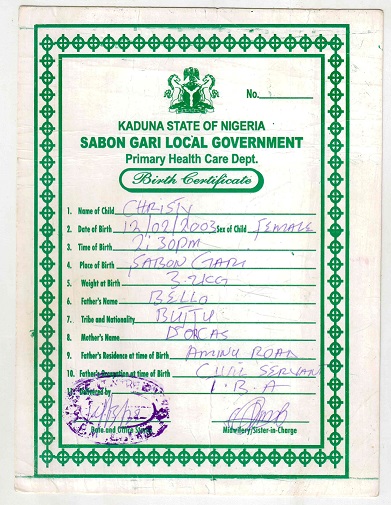 No.
KADUNA STATE OF NIGERIA
SABON GARI LOCAL GOVERNMENT
Primary Health Care Dept.
Birth Certificate
1. Name of Child CHRISTY
2. Date of Birth 12/02/2003 Sex of Child FEMALE
3. Time of Birth 2:30PM
4. Place of Birth SABON GARI
5. Weight at Birth 3.2KG
6. Father's Name BELLO
7. Tribe and Nationality
8. Mother's Name DORCAS
9. Father's Residence at time of Birth AMINU ROAD
10. Father's Occupation at time of Birth CIVIL SERVANT
by I.B.A
Date and Office Stamp Midwifery/Sister-in-Charge